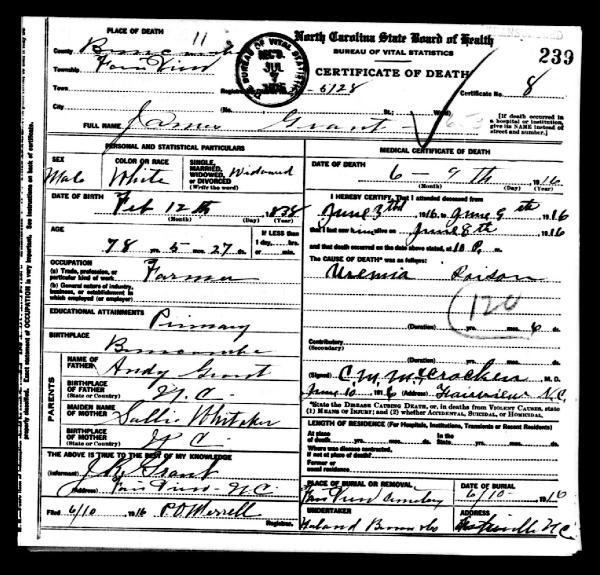 PLACE OF DEATH
County Buncombe 11
Township Fair View
Town
City
North Carolina State Board of Health
BUREAU OF VITAL STATISTICS
CERTIFICATE OF DEATH
239
BUREAU OF VITAL STATISTICS
JUL
7
Certificate No. 8
(No. St.; Ward)
[If death occurred in a hospital or institution, give its NAME instead of street and number.]
FULL NAME James Grant
PERSONAL AND STATISTICAL PARTICULARS
SEX
Male
COLOR OR RACE
White
SINGLE, MARRIED, WIDOWED, OR DIVORCED
(Write the word)
Widowed
DATE OF BIRTH
Feb 12th 1838
(Month) (Day) (Year)
AGE
78 yrs. 5 mos. 27 ds.
If LESS than
1 day, hrs.
or min.
OCCUPATION
(a) Trade, profession, or particular kind of work.
Farmer
(b) General nature of industry, business, or establishment in which employed (or employer)
EDUCATIONAL ATTAINMENTS
Primary
BIRTHPLACE
Buncombe
PARENTS
NAME OF FATHER
Andy Grant
BIRTHPLACE OF FATHER
(State or Country)
N.C.
MAIDEN NAME OF MOTHER
Sallie Whitaker
BIRTHPLACE OF MOTHER
(State or Country)
N C
THE ABOVE IS TRUE TO THE BEST OF MY KNOWLEDGE
(Informant) Grant
Address Fair View N.C.
Filed 6/10 1916 P.O. Merrell
Registrar.
MEDICAL CERTIFICATE OF DEATH
DATE OF DEATH
6 - 9 Th 1916
(Month) (Day) (Year)
I HEREBY CERTIFY, That I attended deceased from
June 3rd 1916, to June 9th 1916
that I last saw him alive on June 8th 1916
and that death occurred on the date above stated, at 10 P. m.
The CAUSE OF DEATH* was as follows:
Uremia Poison
120
(Duration) yrs. mos. 6 ds.
Contributory
(Secondary)
(Duration) yrs. mos. ds.
(Signed) C.M. McCracken M. D.
June 10 1916 Fairview N.C.
*State the DISEASE CAUSING DEATH, or, in deaths from VIOLENT CAUSES, state (1) MEANS OF INJURY; and (2) whether ACCIDENTAL, SUICIDAL, or HOMICIDAL.
LENGTH OF RESIDENCE (For Hospitals, Institutions, Transients or Recent Residents)
At place of death yrs. mos. ds. In the State yrs. mos. ds.
Where was disease contracted, if not at place of death?
Former or usual residence.
PLACE OF BURIAL OR REMOVAL
Fair View Cemetery
DATE OF BURIAL
6/10 1916
UNDERTAKER
Address